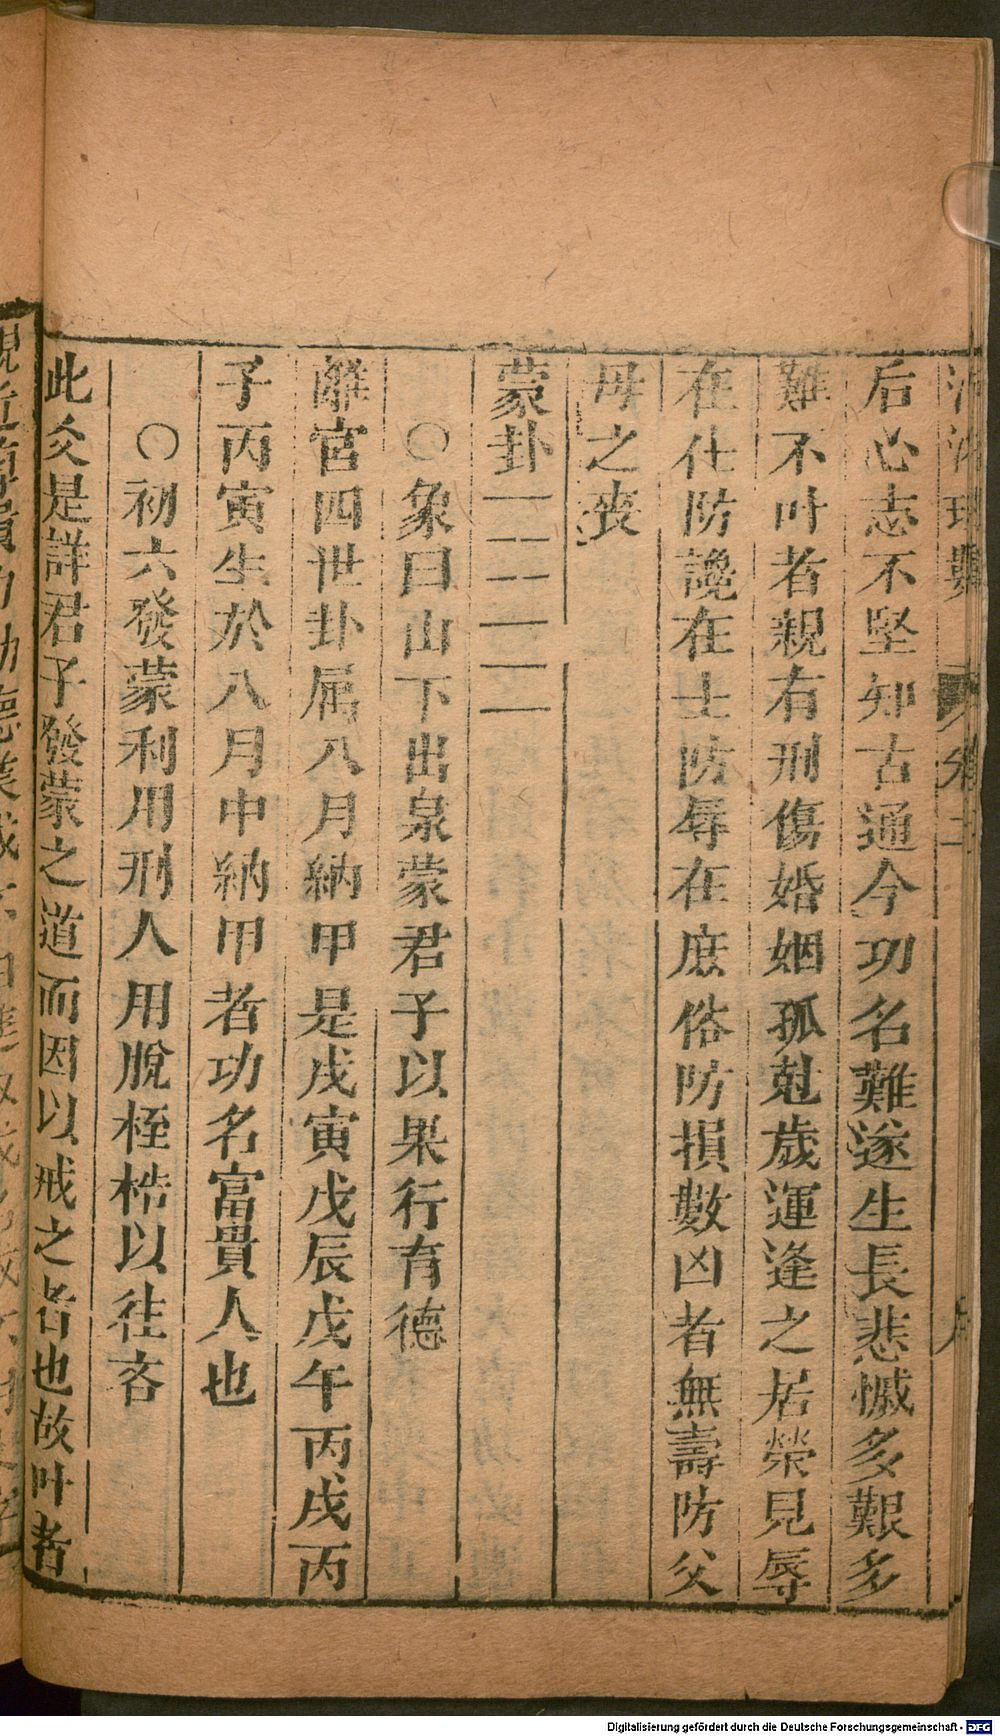 后心志不坚知古通今功名難遂生長悲慽多艱多
難不叶者親有刑傷婚姻孤尅歲運逢之居榮見辱
在仕防讒在士防辱在庶俗防損數凶者無壽防父
母之喪
蒙卦
○象曰山下出泉蒙君子以果行育德
離宮四世卦属八月納甲是戊寅戊辰戊午丙戌丙
子丙寅生於八月中納甲者功名富貴人也
○初六發蒙利用刑人用脫桎梏以往吝
此爻是詳君子發蒙之道而因以戒之者也故叶者
Digitalisierung gefördert durch die Deutsche Forschungsgemeinschaft - DFG